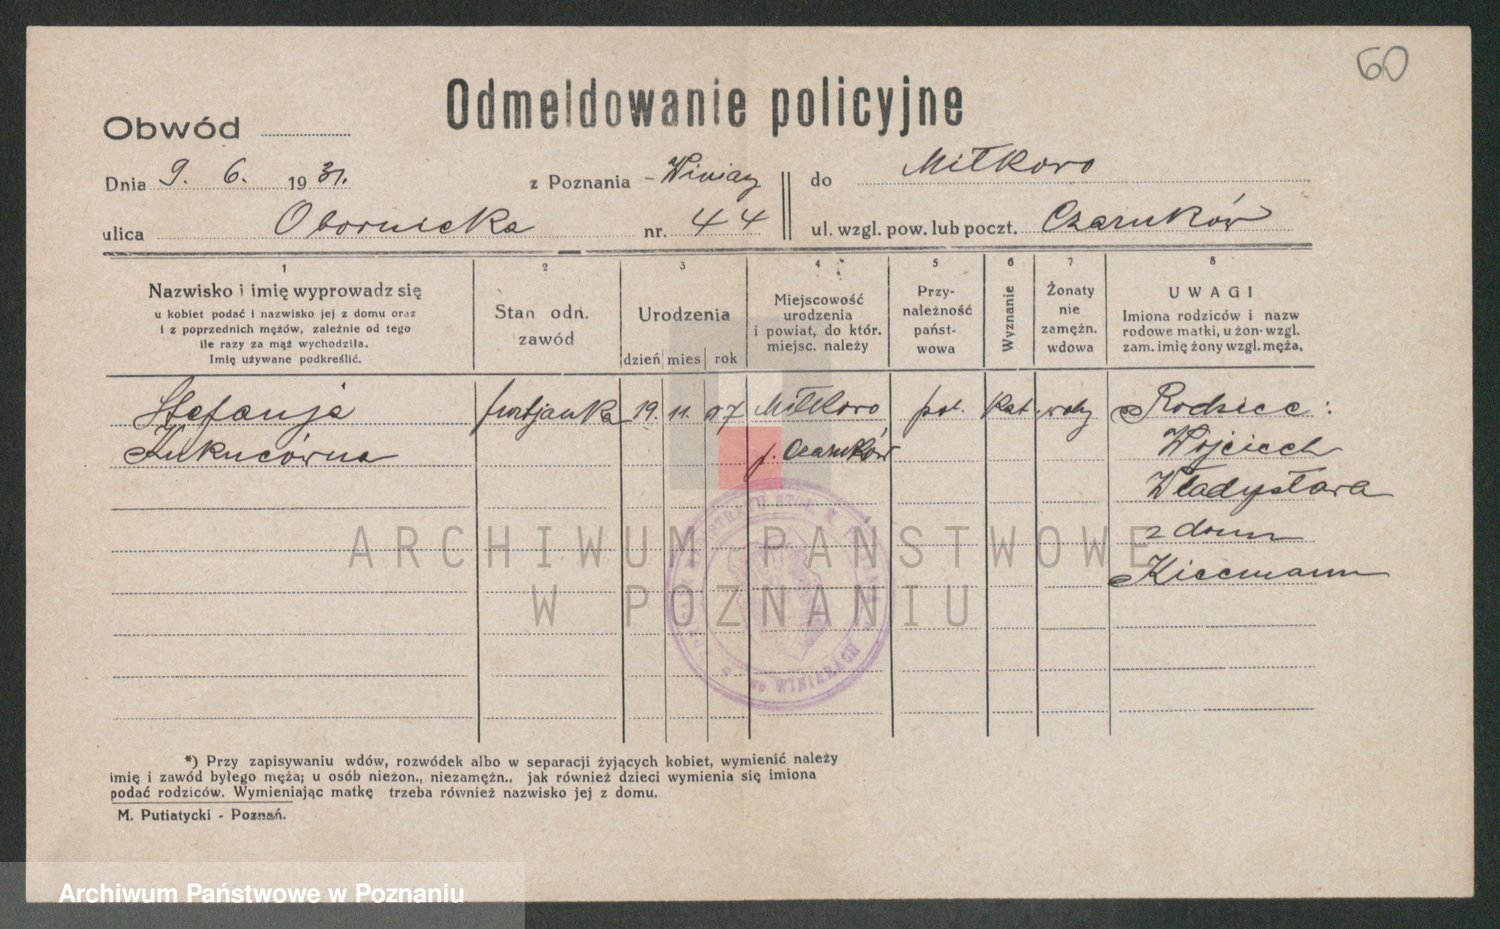 60
Odmeldowanie policyjne
Obwód
Dnia 9. 6. 1931. z Poznania - Winiary do Miłkowo
ulica Obornicka nr. 44 ul. wzgl. pow. lub poczt. Czarnków
1 2 3 4 5 6 7 8
Nazwisko i imię wyprowadz się
u kobiet podać i nazwisko jej z domu oraz
i z poprzednich mężów, zależnie od tego
ile razy za mąż wychodziła.
Imię używane podkreślić.
Stan odn.
zawód
Urodzenia
dzień mies rok
Miejscowość
urodzenia
i powiat, do któr.
miejsc. należy
Przy-
należność
państ-
wowa
Wyznanie
Żonaty
nie
zamężn.
wdowa
UWAGI
Imiona rodziców i nazw
rodowe matki, u żon wzgl.
zam. imię żony wzgl. męża.
Stefanja 19. 11. 07 Miłkowo pol. kat. wolny Rodzice:
p. Czarnków Wojciech
Władysława
z domu
ARCHIWUM PAŃSTWOWE
W POZNANIU
WINIARACH
*) Przy zapisywaniu wdów, rozwódek albo w separacji żyjących kobiet, wymienić należy
imię i zawód byłego męża; u osób nieżon., niezamężn., jak również dzieci wymienia się imiona
podać rodziców. Wymieniając matkę trzeba również nazwisko jej z domu.
M. Putiatycki - Poznań.
Archiwum Państwowe w Poznaniu